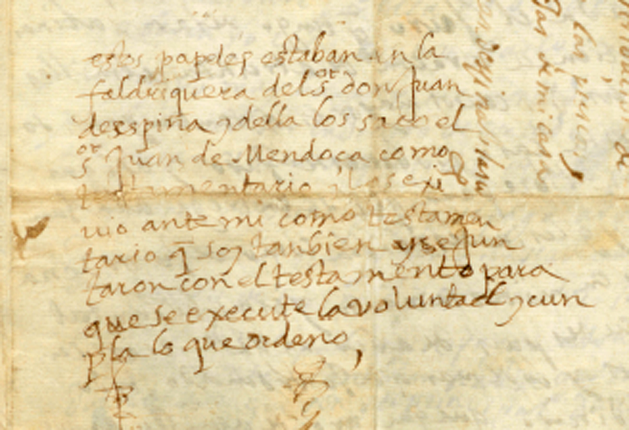 estos papeles estaban en la
faldriquera del sor don Juan
desspina y della los saco el
sor Juan de Mendoca como
testamentario i los exi
uio ante mi como testamen
tario q̃ soy tanbien y se jun
taron con el testamento para
que se execute la voluntad y cun
pla lo que ordeno,